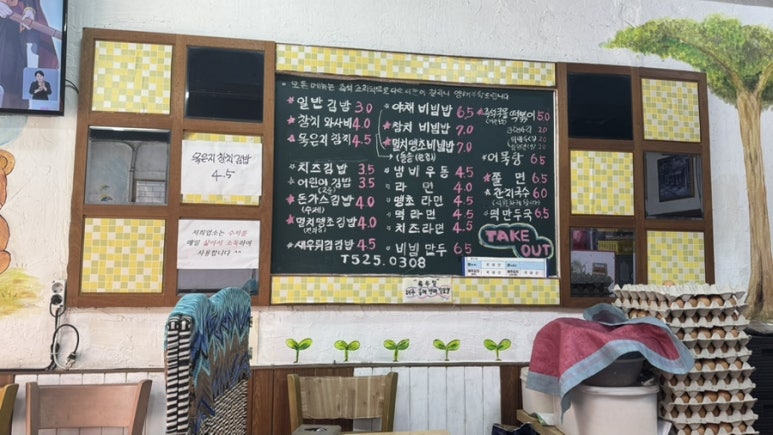 모든 메뉴는
일반 김밥 3.0
참치 와사비 4.0
묵은지 참치 4.5
치즈김밥 3.5
어린이 김밥 3.5
돈가스김밥 4.0
(수제)
멸치땡초김밥 4.0
새우튀김김밥 4.5
T525.0308
야채 비빔밥 6.5
참치 비빔밥 7.0
멸치땡초비빔밥 7.0
냄비우동 4.5
라면 4.0
땡초라면 4.5
떡라면 4.5
치즈라면 4.5
비빔만두 6.5
떡볶이 5.0
어묵탕 6.5
쫄면 6.5
잔치국수 6.0
떡만두국 6.5
TAKE OUT
묵은지 참치김밥
4.5
저희업소는 수저를
매일 삶아서 소독하여
사용합니다 ^^